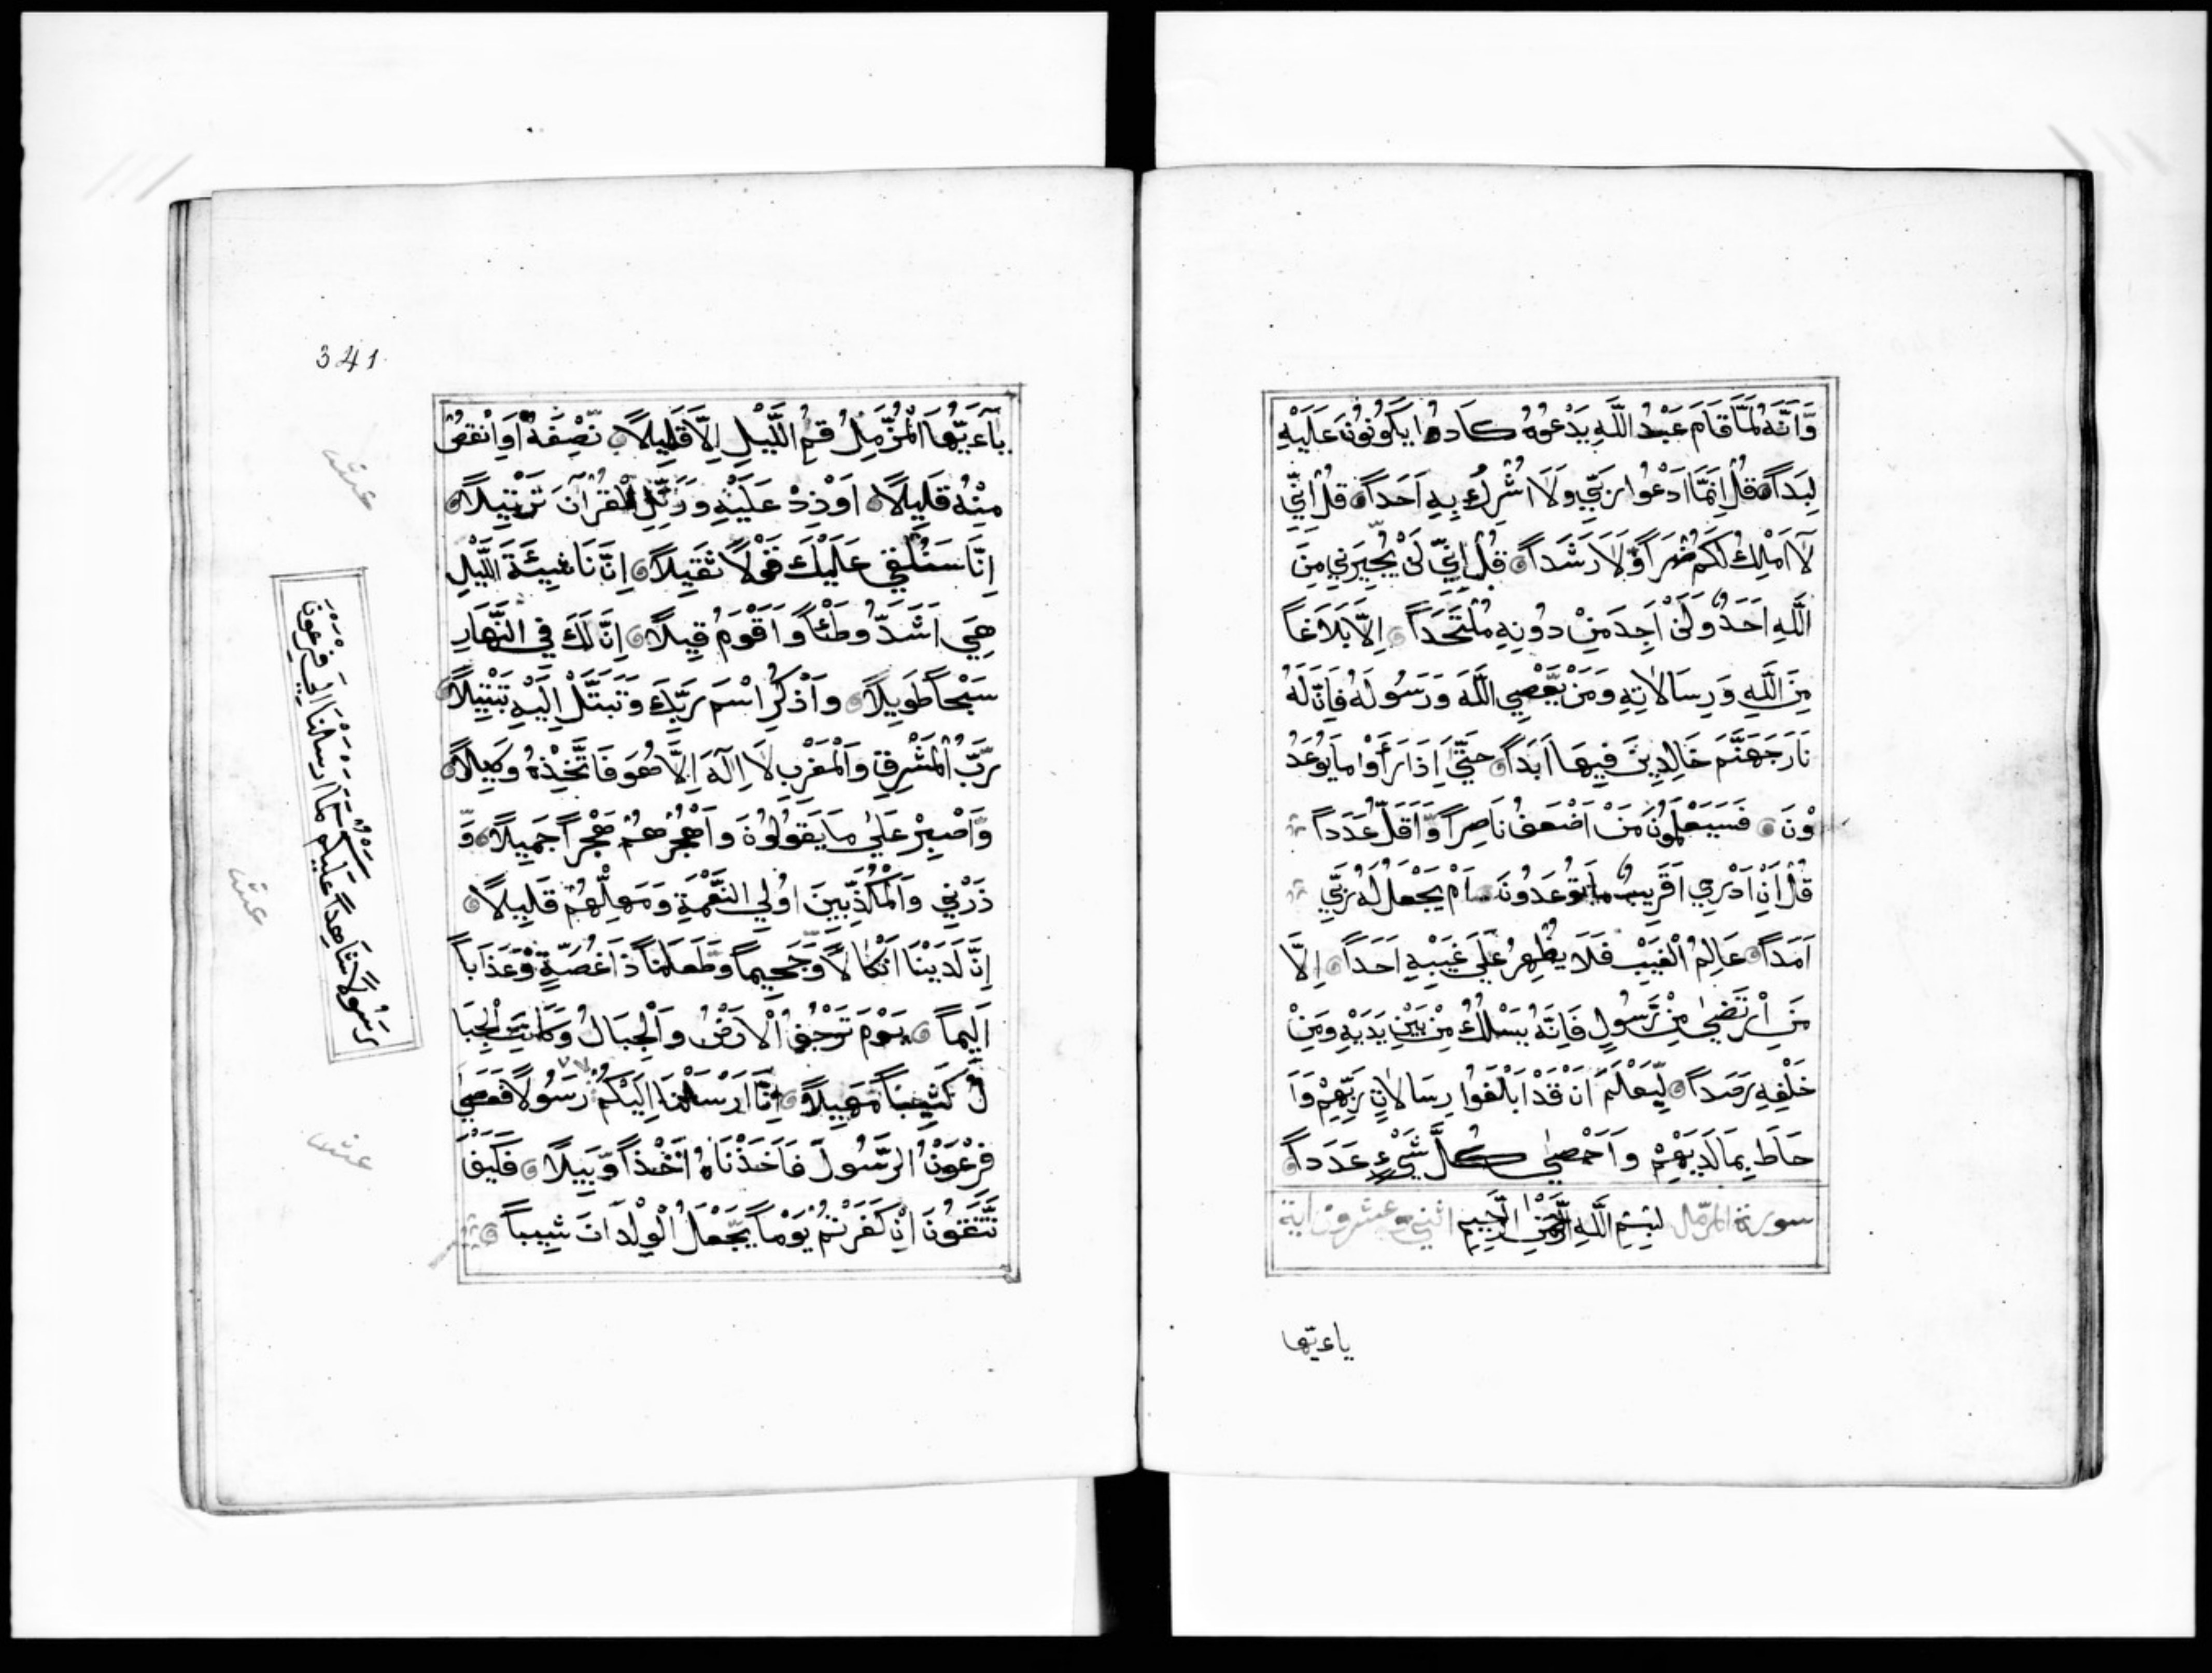 وَّاَنَّهُ لَمَّا قَامَ عَبْدُ اللَّهِ يَدْعُوْهُ كَادُوا يَكُوْنُوْنَ عَلَيْهِ
لِبَداً قُلْ اِنَّمَا اَدْعُوا رَبِّي وَلَا اُشْرِكُ بِهِ اَحَداً قُلْ اِنِّي
لَا اَمْلِكُ لَكُمْ ضَرّاً وَّلَا رَشَداً قُلْ اِنِّي لَنْ يُّجِيْرَنِي مِنَ
اللَّهِ اَحَدٌ وَلَنْ اَجِدَ مِنْ دُوْنِهِ مُلْتَحَداً اِلَّا بَلَاغاً
مِنَ اللَّهِ وَرِسَالَاتِهِ وَمَنْ يَّعْصِي اللَّهَ وَرَسُوْلَهُ فَاِنَّ لَهُ
نَارَ جَهَنَّمَ خَالِدِيْنَ فِيْهَا اَبَداً حَتَّى اِذَا رَأَوْا مَا يُوْعَدُ
وْنَ فَسَيَعْلَمُوْنَ مَنْ اَضْعَفُ نَاصِراً وَّاَقَلُّ عَدَداً
قُلْ اَنْ اَدْرِي اَقَرِيْبٌ مَا تُوْعَدُوْنَ اَمْ يَجْعَلُ لَهُ رَبِّي
اَمَداً عَالِمُ الْغَيْبِ فَلَا يُظْهِرُ عَلَى غَيْبِهِ اَحَداً اِلَّا
مَنِ اْرْتَضَى مِنْ رَّسُوْلٍ فَاِنَّهُ يَسْلُكُ مِنْ بَيْنِ يَدَيْهِ وَمِنْ
خَلْفِهِ رَصَداً لِّيَعْلَمَ اَنْ قَدْ اَبْلَغُوا رِسَالَاتِ رَبِّهِمْ وَاَ
حَاطَ بِمَا لَدَيْهِمْ وَاَحْصَى كُلَّ شَيْءٍ عَدَداً
سورة المزّمّل بِسْمِ اللَّهِ الرَّحْمَنِ الرَّحِيْمِ اثني وعشرون اية
ياءيّها
341
يَآءَيُّهَا الْمُزَّمِّلُ قُمِ اللَّيْلَ اِلَّا قَلِيْلاً نِّصْفَهُ اَوِ انْقُصْ
مِنْهُ قَلِيْلاً اَوْ زِدْ عَلَيْهِ وَرَتِّلِ الْقُرْآنَ تَرْتِيْلاً
اِنَّا سَنُلْقِي عَلَيْكَ قَوْلاً ثَقِيْلاً اِنَّ نَاشِئَةَ اللَّيْلِ
هِيَ اَشَدُّ وَطْئاً وَاَقْوَمُ قِيْلاً اِنَّ لَكَ فِي النَّهَارِ
سَبْحاً طَوِيْلاً وَاذْكُرِ اسْمَ رَبِّكَ وَتَبَتَّلْ اِلَيْهِ تَبْتِيْلاً
رَبُّ الْمَشْرِقِ وَالْمَغْرِبِ لَا اِلَهَ اِلَّا هُوَ فَاتَّخِذْهُ وَكِيْلاً
وَاصْبِرْ عَلَى مَا يَقُوْلُوْنَ وَاهْجُرْهُمْ هَجْراً جَمِيْلاً وَ
ذَرْنِي وَالْمُكَذِّبِيْنَ اُولِي النَّعْمَةِ وَمَهِّلْهُمْ قَلِيْلاً
اِنَّ لَدَيْنَا اَنْكَالاً وَّجَحِيْماً وَّطَعَاماً ذَا غُصَّةٍ وَّعَذَاباً
اَلِيْماً يَوْمَ تَرْجُفُ الْاَرْضُ وَالْجِبَالُ وَكَانَتِ الْجِبَا
لُ كَثِيْباً مَّهِيْلاً اِنَّا اَرْسَلْنَا اِلَيْكُمْ رَسُوْلاً فَعَصَى
فِرْعَوْنُ الرَّسُوْلَ فَاَخَذْنَاهُ اَخْذاً وَّبِيْلاً فَكَيْفَ
تَتَّقُوْنَ اِنْ كَفَرْتُمْ يَوْماً يَّجْعَلُ الْوِلْدَانَ شِيْباً
رَسُوْلاً شَاهِداً عَلَيْكُمْ كَمَا اَرْسَلْنَا اِلَى فِرْعَوْنَ
عشر
عشر
عشر